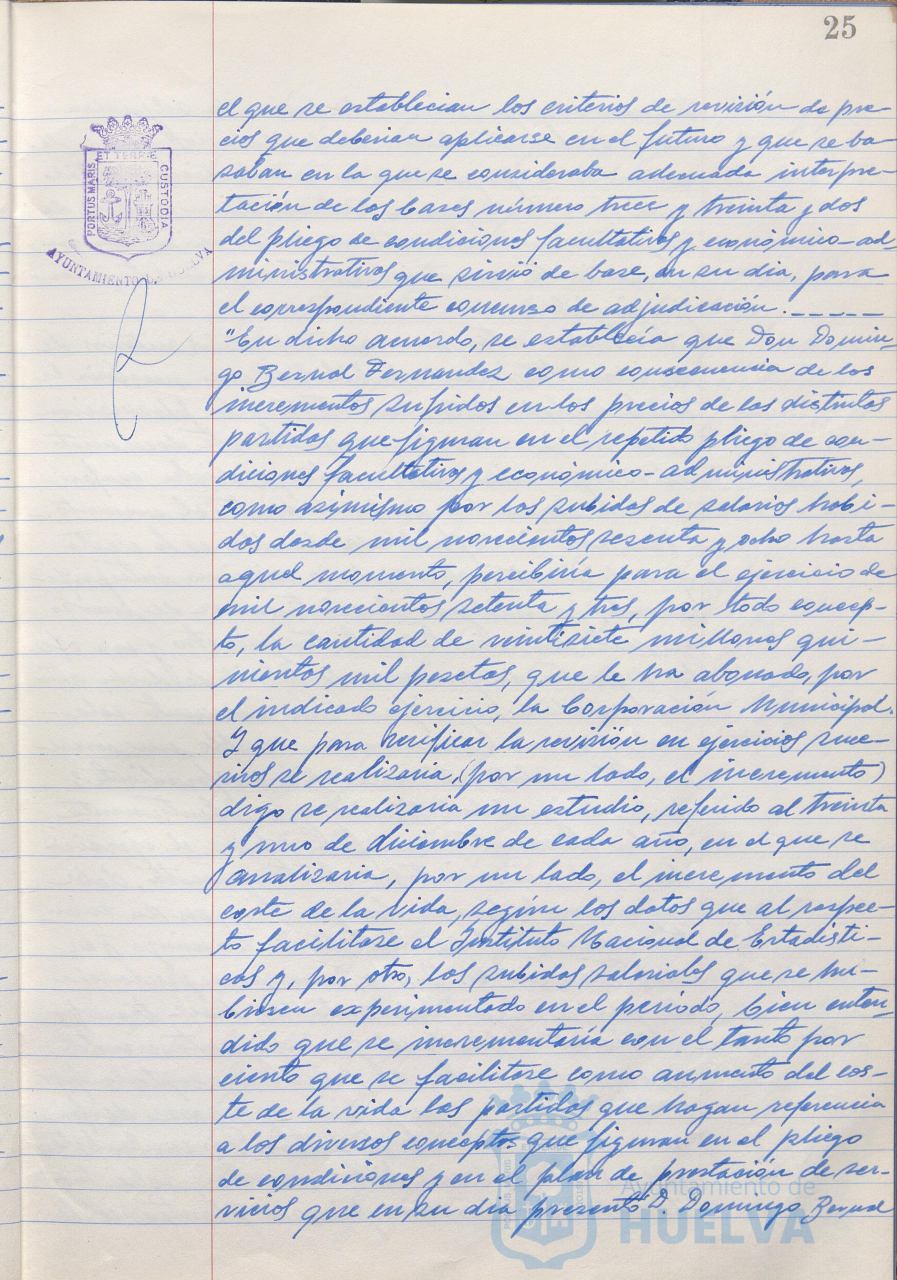 25
ET TERRAE
PORTUS MARIS
CUSTODIA
AYUNTAMIENTO DE HUELVA
el que se establecian los criterios de revisión de pre-
cios que deberian aplicarse en el futuro y que se ba-
saban en la que se consideraba adecuada interpre-
tación de las bases número trece y treinta y dos
del pliego de condiciones facultativas y económico-ad-
ministrativas que sirvió de base, en su dia, para
el correspondiente concurso de adjudicación. -----
"En dicho acuerdo, se establecía que Don Domin-
go Bernal Fernandez como consecuencia de los
incrementos sufridos en los precios de las distintas
partidas que figuran en el repetido pliego de con-
diciones facultativas y económico-administrativas,
como asimismo por las subidas de salarios habi-
das desde mil novecientos sesenta y ocho hasta
aquel momento, percibiria para el ejercicio de
mil novecientos setenta y tres, por todo concep-
to, la cantidad de veintisiete millones qui-
nientas mil pesetas, que le ha abonado, por
el indicado ejercicio, la Corporación Municipal.
Y que para verificar la revisión en ejercicios suce-
sivos se realizaria, (por un lado, el incremento)
digo se realizaria un estudio, referido al treinta
y uno de diciembre de cada año, en el que se
analizaria, por un lado, el incremento del
coste de la vida, según los datos que al respec-
to facilitase el Instituto Nacional de Estadisti-
cas y, por otro, las subidas salariales que se hu-
biesen experimentado en el periodo, bien enten-
dido que se incrementaria con el tanto por
ciento que se facilitase como aumento del cos-
te de la vida las partidas que hagan referencia
a los diversos conceptos que figuran en el pliego
de condiciones y en el plan de prestación de ser-
vicios que en su dia presentó D. Domingo Bernal
Ayuntamiento de
HUELVA